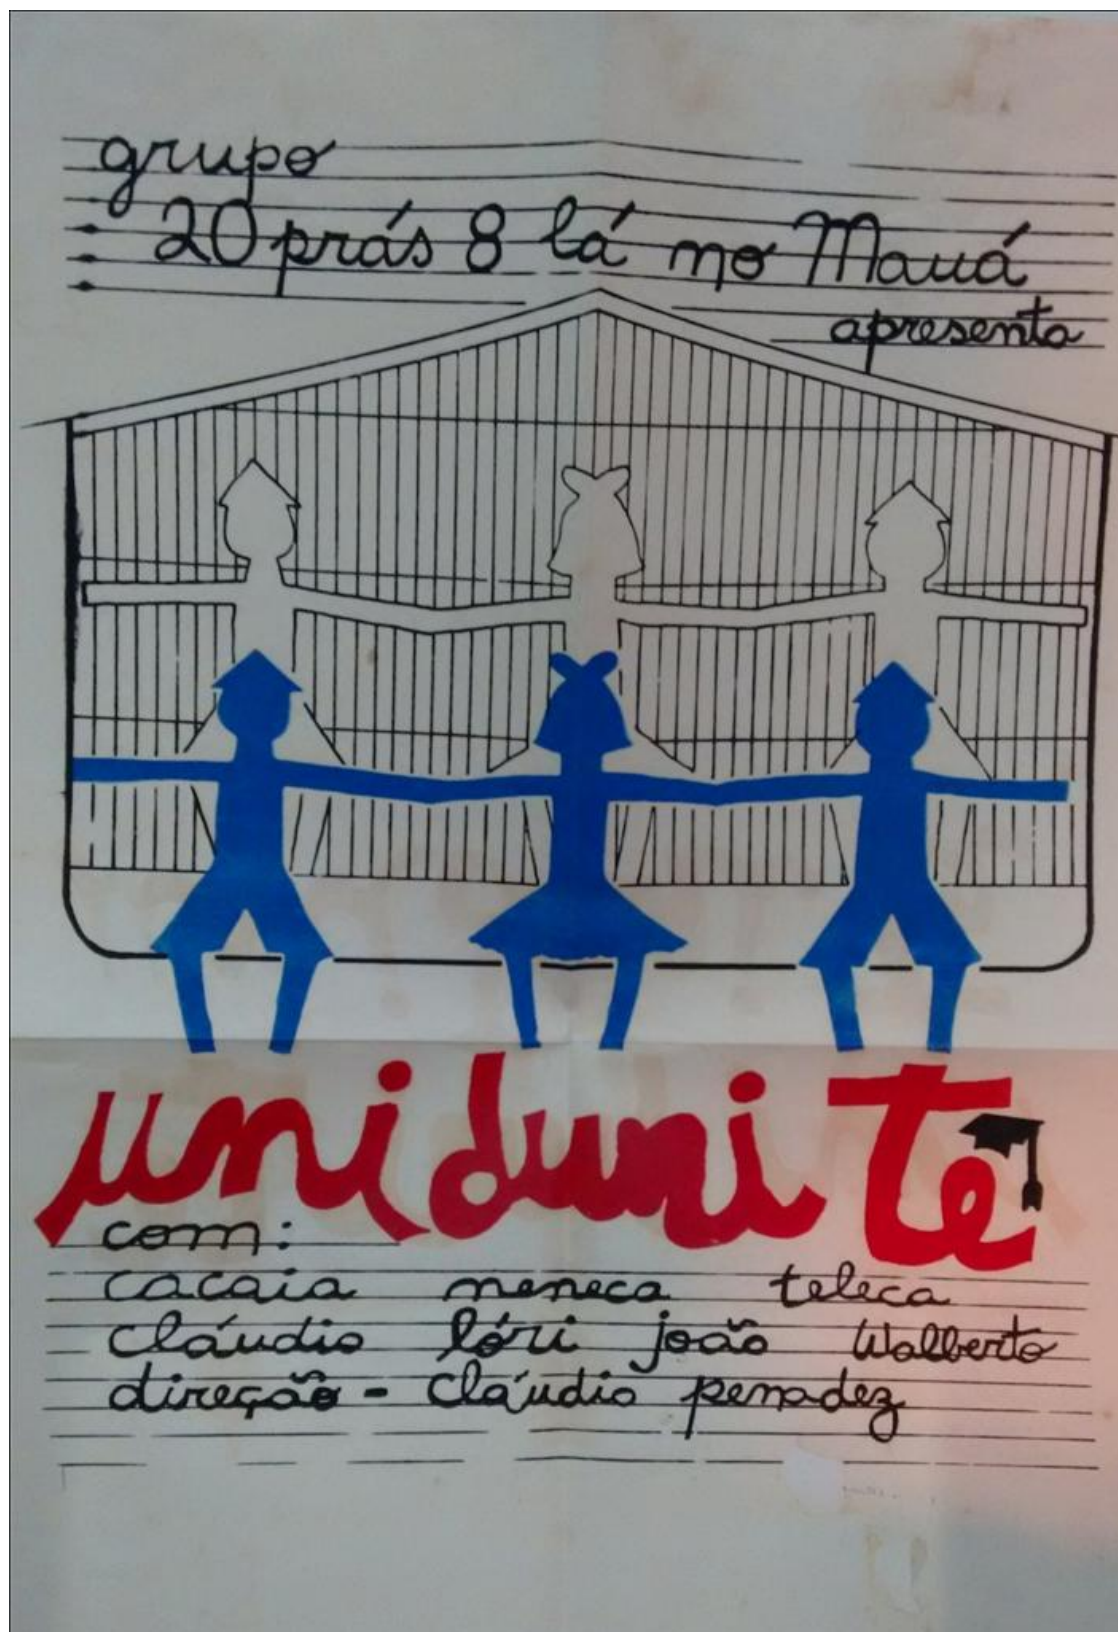 grupo
20 prás 8 lá no Mauá
apresenta
uni duni te
com:
cacaia meneca teleca
cláudio lóri joão Walberto
direção - cláudio penadez